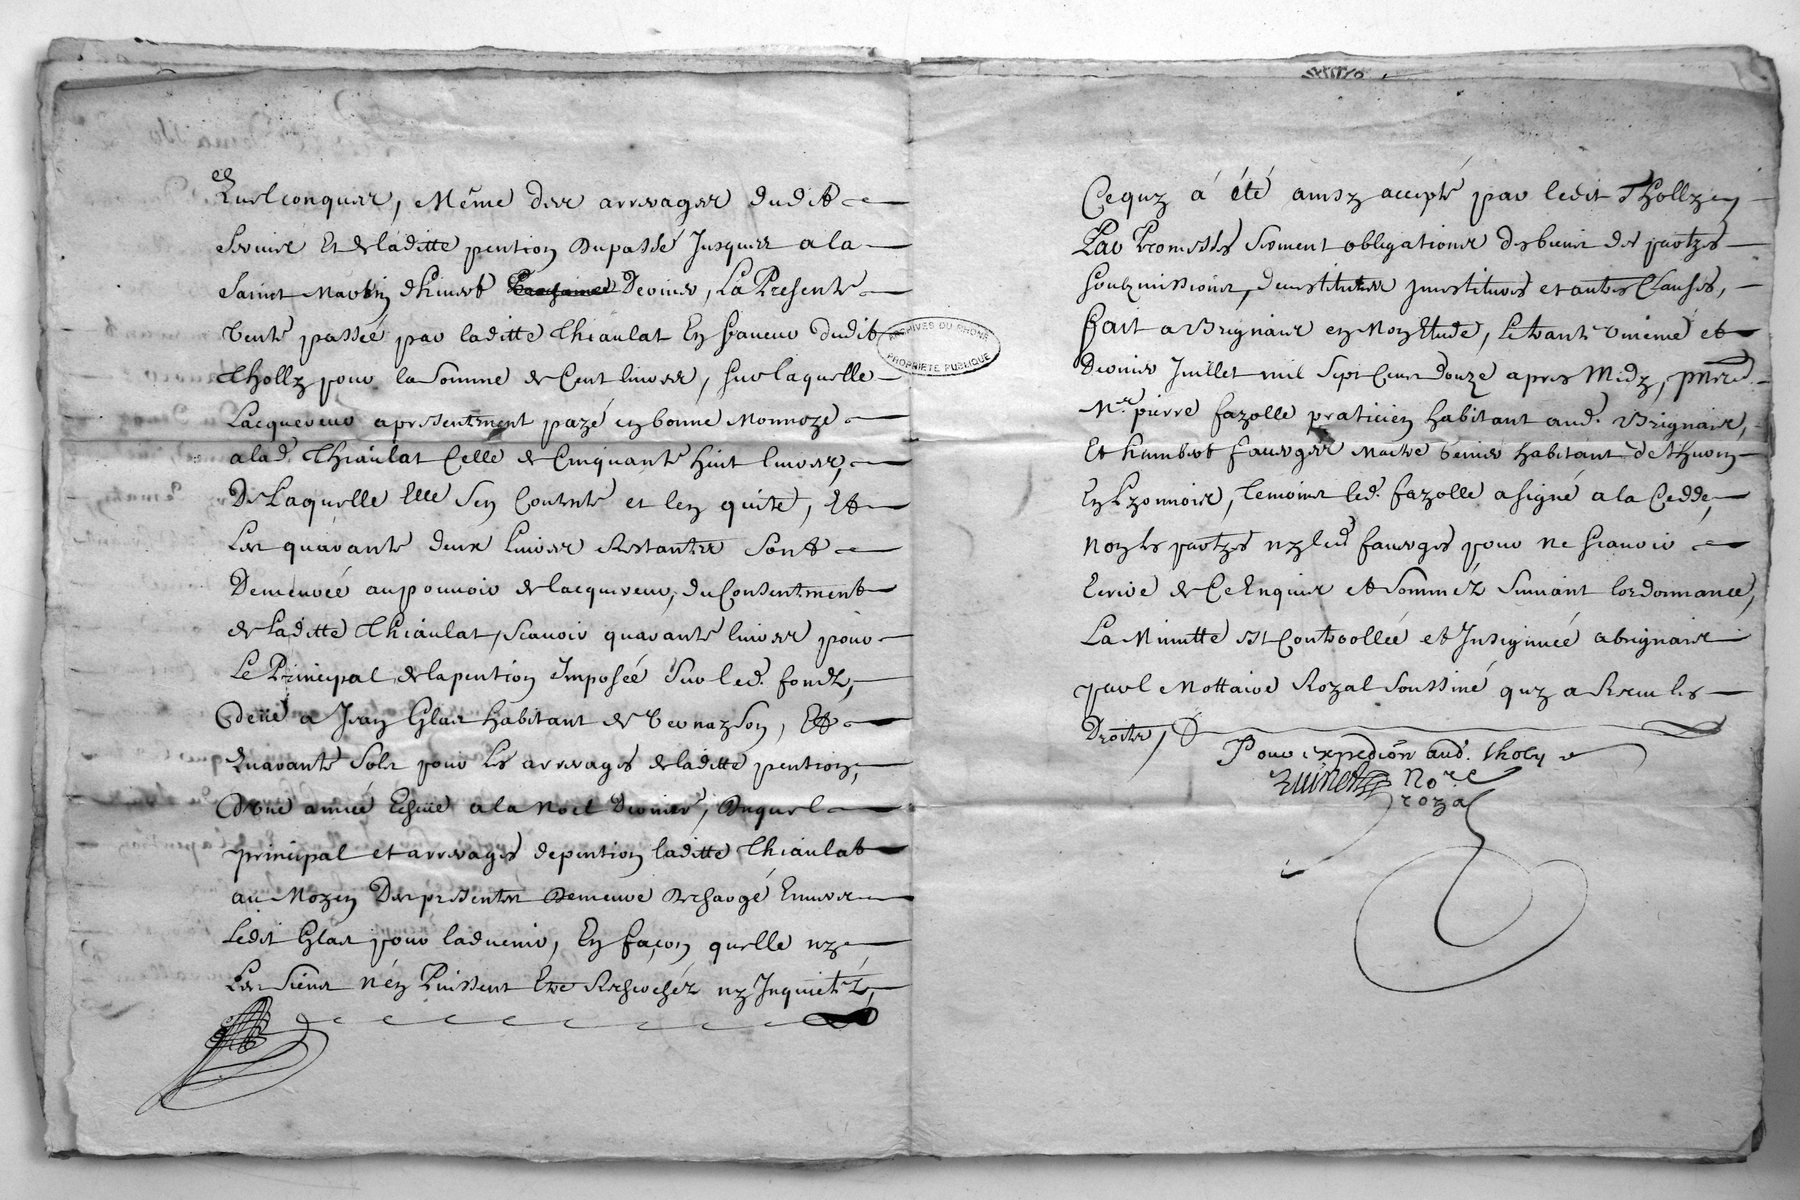 Quelconques, Même des arrerages dudit
servis Et de laditte pention Dupassé Jusques a la
saint Martin dhivert Dernier, La Presente
vente passée par laditte Thiaulat En faveur dudit
Tholly pour la somme de Cent livres, sur laquelle
Lacquereur a presentement payé en bonne Monnoye
a lad. Thiaulat Celle de Cinquante huit livres,
De Laquelle Elle sen Contente et len quite, Et
Les quarante deux livres restantes sont
Demeurée au pouvoir de lacquereur, du Consentement
de laditte Thiaulat, scavoir quarante livres pour
Le Principal de la pention Imposée sur led. fondz,
Deüe a Jean Glas habitant de Vernayson, Et
Quarante sols pour les arrerages de laditte pention,
Dune année Escüe a la Noel Dernier, Duquel
principal et arrerages de pention laditte Thiaulat
au Moyen Des presentes Demeure Deschargé Envers
ledit Glas pour ladvenir, En façon quelle ny
Les siens n'en Puissent Etre Recherchéz ny Inquietéz,
ARCHIVES DU RHONE
PROPRIETE PUBLIQUE
Cequy á été ainsy accepté par ledit Thollyen
Par Promesses serment obligations des biens des partyes
soubzmissions, Fait a Brignais en Mon Etude, Le trente unieme et
Dernier Juillet mil sept Cens douze apres Midy, pnts
Mr. pierre fazolle praticien habitant aud. Brignais,
Et humbert fauerges habitant de
En Lyonnois, Temoins led. fazolle a signé a la Cedde,
Non les partyes ny led. fauerges pour ne scavoir
Ecrire de Ce Enquis et somméz suivant lordonnance,
La Minutte est Controollée et Insignuée a brignais
par l Nottaire Royal soussiné quy a Receu les
Droits,
Pour expedion aud. Tholy
Nore
royal